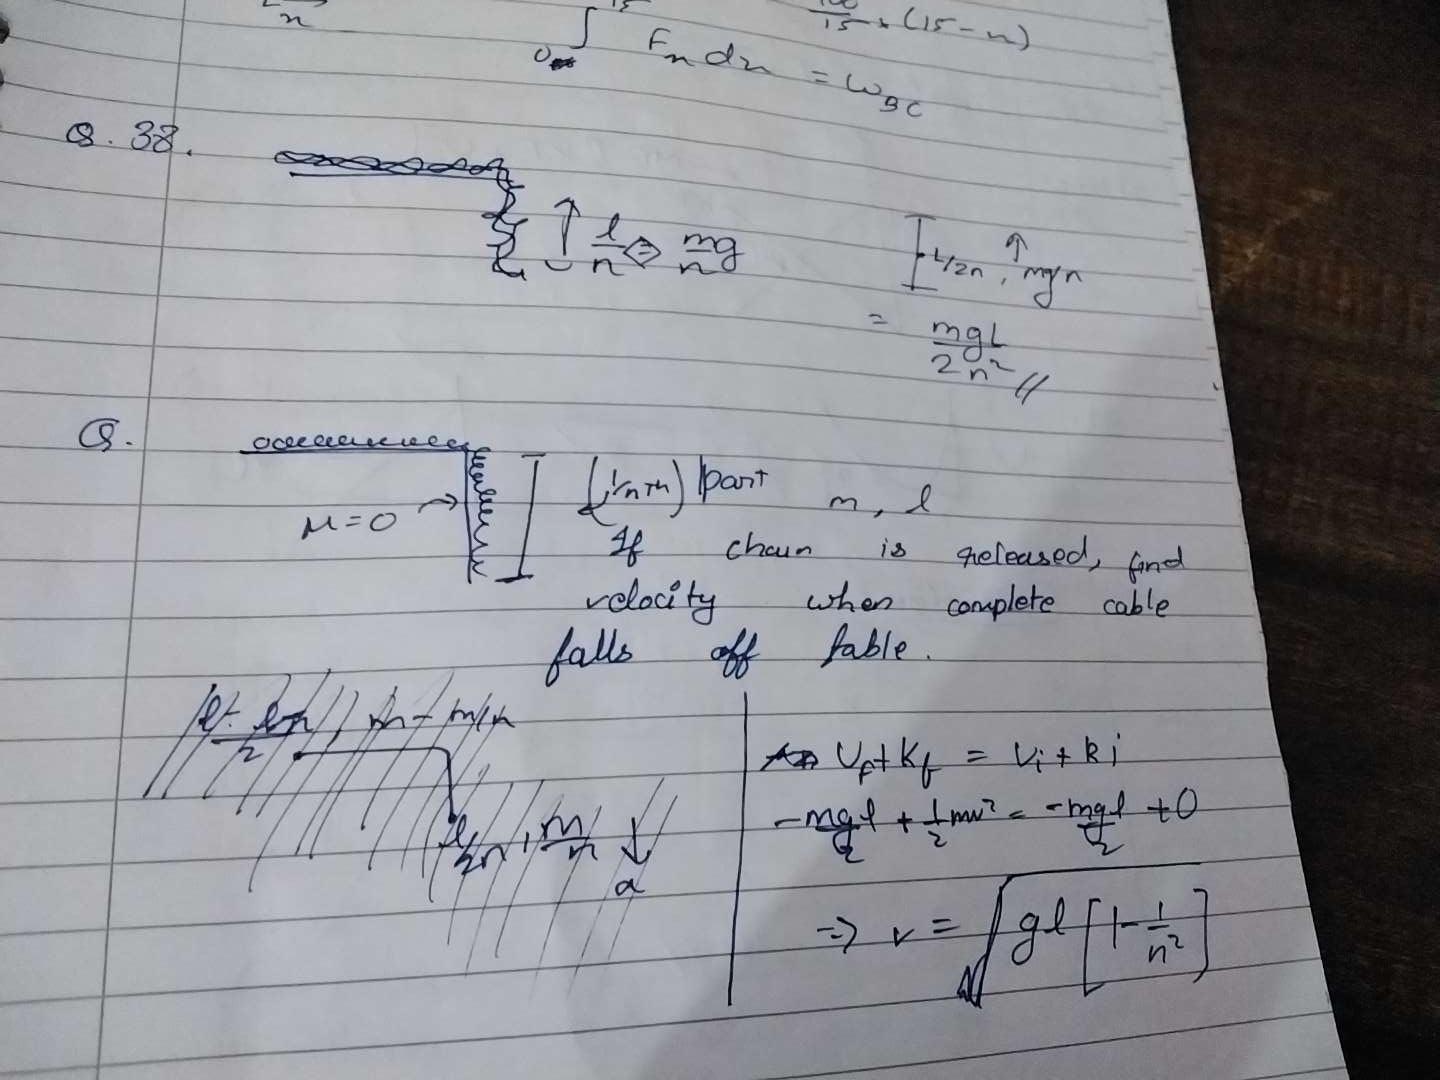 n
∫ Fn dn = WBC
0
15 × (15-n)
Q. 38.
l/n = mg/n
L/2n, mg/n
= mgL/2n² //
Q.
μ=0
(1/nth) part m, l
If chain is released, find
velocity when complete cable
falls off table.
m - m/n
l/2n, m/n
a
Uf + Kf = Ui + Ki
-mgl/2 + 1/2 mv² = -mgl/2 + 0
⇒ v = √gl[1 - 1/n²]